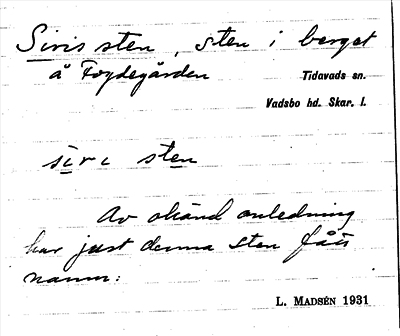 Siris sten, sten i berget
å Frydegården
Tidavads sn.
Vadsbo hd. Skar. l.
siri sten
Av okänd anledning
har just denna sten fått
namn:
L. MADSÉN 1931